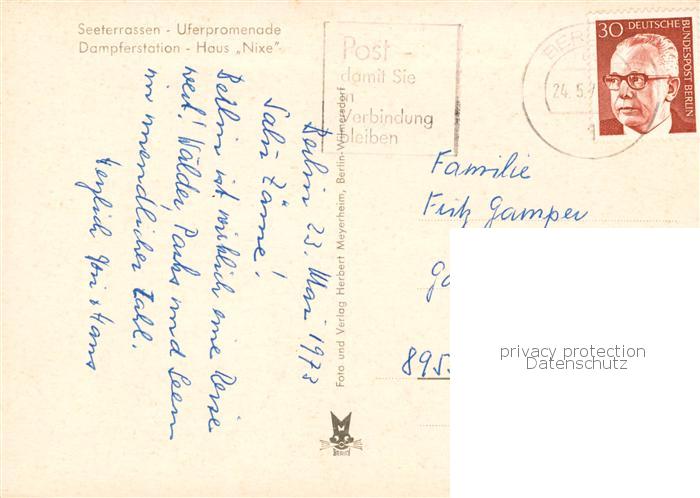 Seeterrassen - Uferpromenade
Dampferstation - Haus „Nixe"
Post -
damit Sie
in
Verbindung
bleiben
BER
24. 5. 7
1
30 DEUTSCHE
BUNDESPOST BERLIN
Berlin 23. Mai 1973
Salü Zäme!
Berlin ist wirklich eine Reise
wert! Wälder, Parks und Seen
in unendlicher Zahl.
Herzlich Hans
Foto und Verlag Herbert Meyerheim, Berlin-Wilmersdorf
Familie
Fritz Gamper
895
privacy protection
Datenschutz